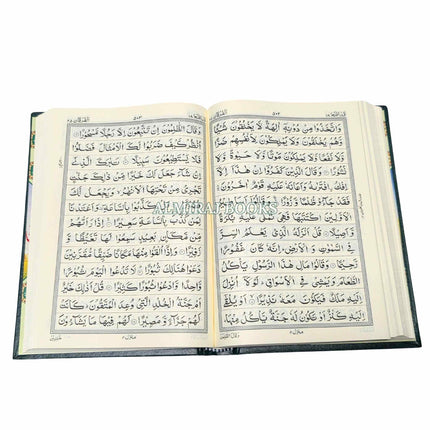 قد افلح ١٨
الفرقان ٢٥
وَاتَّخَذُوْا مِنْ دُوْنِهٖۤ اٰلِهَةً لَّا يَخْلُقُوْنَ شَيْـًٔا
وَّهُمْ يُخْلَقُوْنَ وَلَا يَمْلِكُوْنَ لِاَنْفُسِهِمْ ضَرًّا
وَّلَا نَفْعًا وَّلَا يَمْلِكُوْنَ مَوْتًا وَّلَا حَيٰوةً وَّلَا
نُشُوْرًا ۝ وَقَالَ الَّذِيْنَ كَفَرُوْۤا اِنْ هٰذَاۤ اِلَّاۤ
اِفْكُ ۨافْتَرٰىهُ وَاَعَانَهٗ عَلَيْهِ قَوْمٌ اٰخَرُوْنَ
فَقَدْ جَآءُوْ ظُلْمًا وَّزُوْرًا ۝ وَقَالُوْۤا اَسَاطِيْرُ
الْاَوَّلِيْنَ اكْتَتَبَهَا فَهِيَ تُمْلٰى عَلَيْهِ بُكْرَةً
وَّاَصِيْلًا ۝ قُلْ اَنْزَلَهُ الَّذِيْ يَعْلَمُ السِّرَّ
فِي السَّمٰوٰتِ وَالْاَرْضِ اِنَّهٗ كَانَ غَفُوْرًا
رَّحِيْمًا ۝ وَقَالُوْا مَالِ هٰذَا الرَّسُوْلِ يَاْكُلُ
الطَّعَامَ وَيَمْشِيْ فِي الْاَسْوَاقِ لَوْلَاۤ اُنْزِلَ
اِلَيْهِ مَلَكٌ فَيَكُوْنَ مَعَهٗ نَذِيْرًا ۝ اَوْ يُلْقٰۤى
اِلَيْهِ كَنْزٌ اَوْ تَكُوْنُ لَهٗ جَنَّةٌ يَّاْكُلُ مِنْهَا
الفرقان ٢٥
وَقَالَ الظّٰلِمُوْنَ اِنْ تَتَّبِعُوْنَ اِلَّا رَجُلًا مَّسْحُوْرًا ۝
اُنْظُرْ كَيْفَ ضَرَبُوْا لَكَ الْاَمْثَالَ فَضَلُّوْا
فَلَا يَسْتَطِيْعُوْنَ سَبِيْلًا ۝ تَبٰرَكَ الَّذِيْۤ
اِنْ شَآءَ جَعَلَ لَكَ خَيْرًا مِّنْ ذٰلِكَ جَنّٰتٍ
تَجْرِيْ مِنْ تَحْتِهَا الْاَنْهٰرُ وَيَجْعَلْ لَّكَ
قُصُوْرًا ۝ بَلْ كَذَّبُوْا بِالسَّاعَةِ وَاَعْتَدْنَا
لِمَنْ كَذَّبَ بِالسَّاعَةِ سَعِيْرًا ۝ اِذَا رَاَتْهُمْ
مِّنْ مَّكَانٍۭ بَعِيْدٍ سَمِعُوْا لَهَا تَغَيُّظًا وَّ
زَفِيْرًا ۝ وَاِذَاۤ اُلْقُوْا مِنْهَا مَكَانًا ضَيِّقًا مُّقَرَّنِيْنَ
دَعَوْا هُنَالِكَ ثُبُوْرًا ۝ لَا تَدْعُوا الْيَوْمَ ثُبُوْرًا
وَّاحِدًا وَّادْعُوْا ثُبُوْرًا كَثِيْرًا ۝ قُلْ اَذٰلِكَ خَيْرٌ
اَمْ جَنَّةُ الْخُلْدِ الَّتِيْ وُعِدَ الْمُتَّقُوْنَ كَانَتْ
لَهُمْ جَزَآءً وَّمَصِيْرًا ۝ لَهُمْ فِيْهَا مَا يَشَآءُوْنَ
ALMIRAJ BOOKS